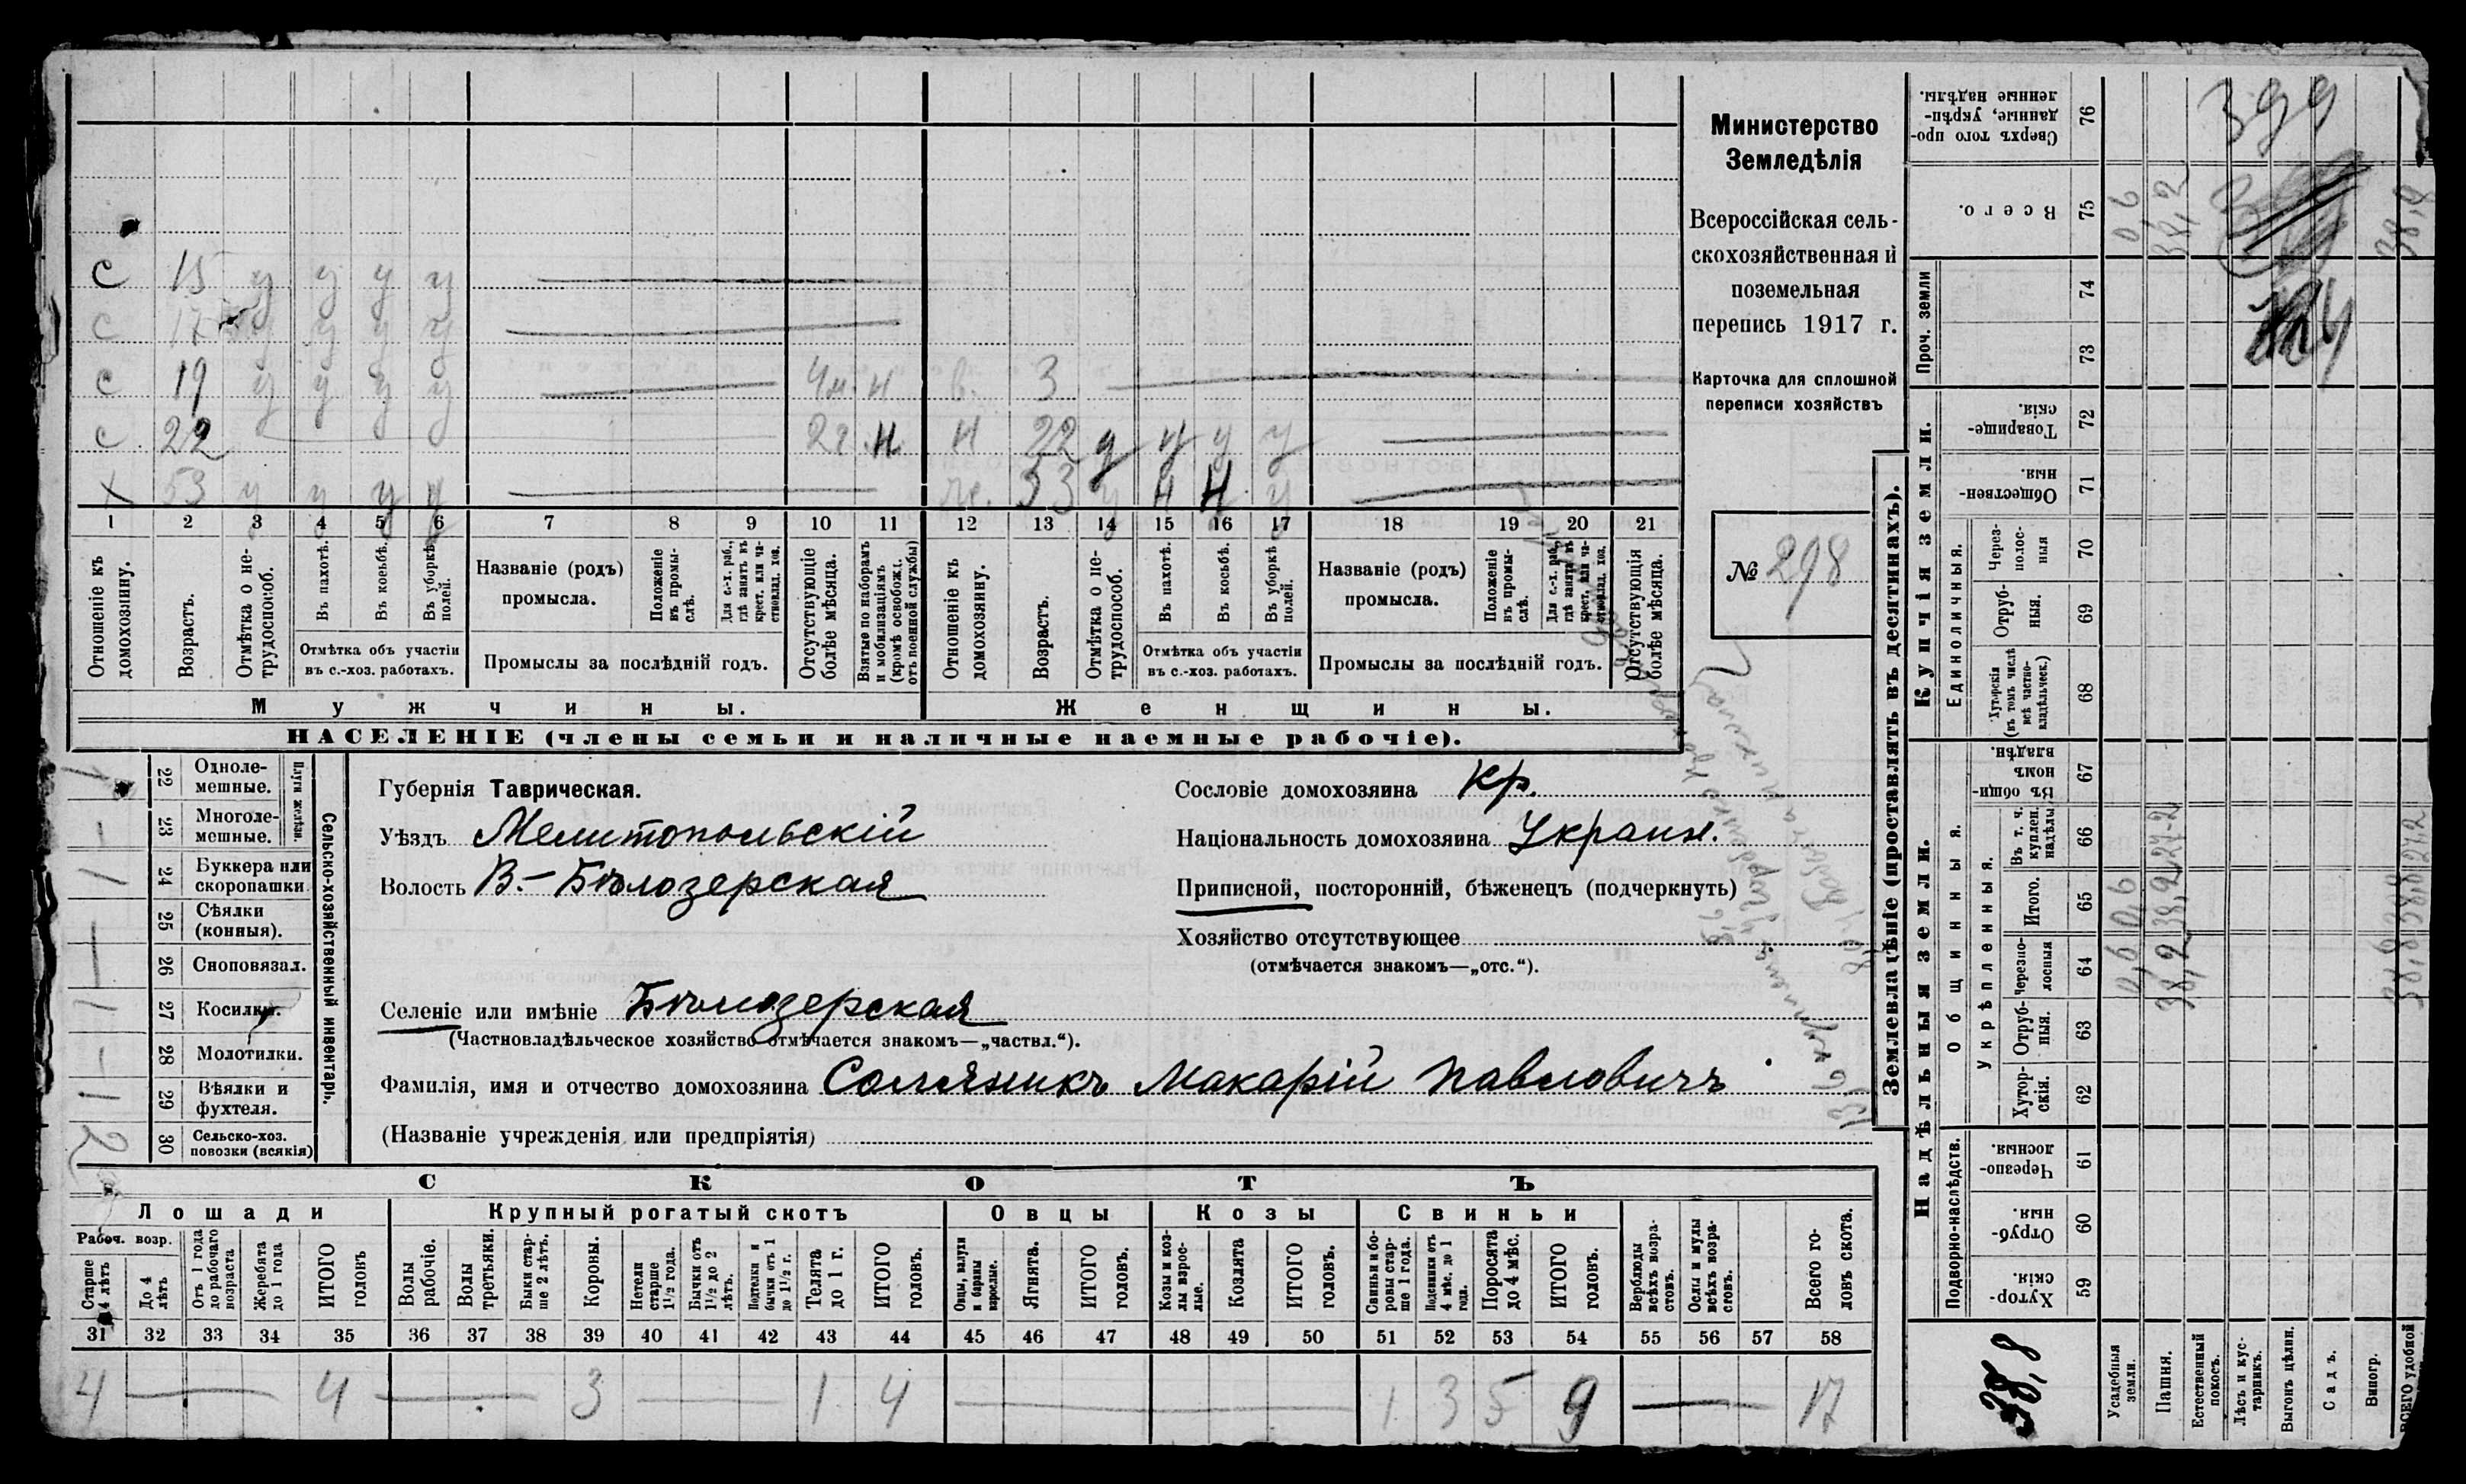 С 15 у у у у
С 17 у у у у
С 19 у у у у 4м. н в. 3
С 22 2г. н н 22 у н у у
х 53 у у у у ж. 53 у н н у
1 2 3 4 5 6 7 8 9 10 11 12 13 14 15 16 17 18 19 20 21
Отношеніе къ домохозяину.
Возрастъ.
Отмѣтка о не-трудоспособ.
Въ пахотѣ.
Въ косьбѣ.
Въ уборкѣ полей.
Отмѣтка объ участіи
въ с.-хоз. работахъ.
Названіе (родъ)
промысла.
Положеніе въ промы-слѣ.
Для с.-х. раб., гдѣ занятъ въ крест. или ча-стновлад. хоз.
Промыслы за послѣдній годъ.
Отсутствующіе болѣе мѣсяца.
Взятые по наборамъ и мобилизаціямъ (кромѣ освобожд. отъ военной службы)
Отношеніе къ домохозяину.
Возрастъ.
Отмѣтка о не-трудоспособ.
Въ пахотѣ.
Въ косьбѣ.
Въ уборкѣ полей.
Отмѣтка объ участіи
въ с.-хоз. работахъ.
Названіе (родъ)
промысла.
Положеніе въ промы-слѣ.
Для с.-х. раб., гдѣ занятъ въ крест. или ча-стновлад. хоз.
Промыслы за послѣдній годъ.
Отсутствующія болѣе мѣсяца.
Мужчины.
Женщины.
НАСЕЛЕНІЕ (члены семьи и наличные наемные рабочіе).
Министерство
Земледѣлія
Всероссійская сель-
скохозяйственная и
поземельная
перепись 1917 г.
Карточка для сплошной
переписи хозяйствъ
№ 298
Сельско-хозяйственный инвентарь.
Плуги желѣзн.
22 Одноле-мешные.
23 Многоле-мешные.
24 Буккера или скоропашки.
25 Сѣялки (конныя).
26 Сноповязал.
27 Косилки.
28 Молотилки.
29 Вѣялки и фухтеля.
30 Сельско-хоз. повозки (всякія)
1 1 1 1 2
Губернія Таврическая.
Уѣздъ Мелитопольскій
Волость В.-Бѣлозерская
Сословіе домохозяина кр.
Національность домохозяина Украин.
Приписной, посторонній, бѣженецъ (подчеркнуть)
Хозяйство отсутствующее
(отмѣчается знакомъ—„отс.“).
Селеніе или имѣніе Бѣлозерская
(Частновладѣльческое хозяйство отмѣчается знакомъ—„частвл.“).
Фамилія, имя и отчество домохозяина Соляникъ Макарій Павловичъ
(Названіе учрежденія или предпріятія)
СКОТЪ
Лошади
Крупный рогатый скотъ
Овцы
Козы
Свиньи
Рабоч. возр.
Старше 4 лѣтъ
До 4 лѣтъ
Отъ 1 года до рабочаго возраста
Жеребята до 1 года
ИТОГО головъ
Волы рабочіе.
Волы третьяки.
Быки стар-ше 2 лѣтъ.
Коровы.
Нетели старше 1½ года.
Бычки отъ 1½ до 2 лѣтъ.
Подтелки и бычки отъ 1 до 1½ г.
Телята до 1 г.
ИТОГО головъ.
Овцы, валухи и бараны взрослые.
Ягнята.
ИТОГО головъ.
Козы и коз-лы взрос-лые.
Козлята
ИТОГО головъ.
Свиньи и бо-ровы стар-ше 1 года.
Подсвинки отъ 4 мѣс. до 1 года.
Поросята до 4 мѣс.
ИТОГО головъ.
Верблюды всѣхъ возра-стовъ.
Ослы и мулы всѣхъ возра-стовъ.
Всего го-ловъ скота.
31 32 33 34 35 36 37 38 39 40 41 42 43 44 45 46 47 48 49 50 51 52 53 54 55 56 57 58
4 4 3 1 4 1 3 5 9 17
Землевладѣніе (проставлять въ десятинахъ).
Надѣльныя земли.
Купчія земли.
Проч. земли
Подворно-наслѣдств.
Общинныя.
Укрѣпленныя.
Единоличныя.
59 Хутор-скія.
60 Отруб-ныя.
61 Черезпо-лосныя.
62 Хутор-скія.
63 Отруб-ныя.
64 Черезпо-лосныя
65 Итого.
66 Въ т. ч. куплен. надѣлы
67 Въ общи-номъ владѣн.
68 Хуторскія (въ томъ числѣ всѣ частно-владѣльческ.)
69 Отруб-ныя.
70 Через-полос-ныя
71 Обществен-ныя.
72 Товарище-скія.
73
74
75 Всего.
76 Сверхъ того про-данные, укрѣп-ленные надѣлы.
Усадебныя земли. 0,6 0,6 0,6
Пашня. 38,2 38,2 27,2 38,2
Естественный покосъ.
Лѣсъ и кус-тарникъ.
Выгонъ цѣлин.
Садъ.
Виногр.
ВСЕГО удобной 38,8 38,8 27,2 38,8
38,8
399